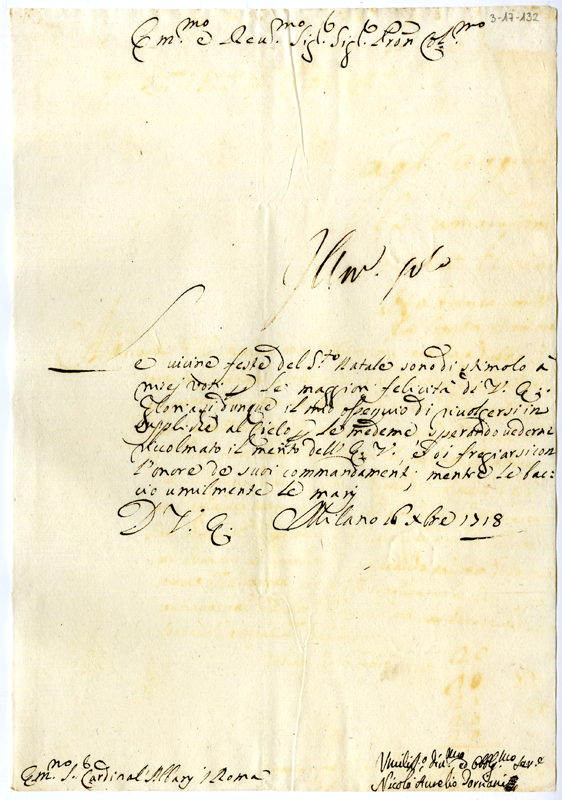 3-17-132
Em.mo e Reu.mo Sig.r Sig.r Pron Col.mo
Le vicine feste del S.to Natale sono di stimolo à
miej voti p le maggiori felicità di V. E.
Gloriasi dunque il mio ossequio di riuolgersi in
suppliche al Cielo p le medeme sperando vederne
ricolmato il merito dell' E. V., e poi fregiarsi con
l'onore de suoi commandamenti; mentre le bac=
cio umilmente le manj
D V. E. Milano 16 Xbre 1718
Em.mo S.r Cardinal Albani Roma
Umiliss.o diu.mo ed obblig.mo Ser.e
Nicolò Aurelio